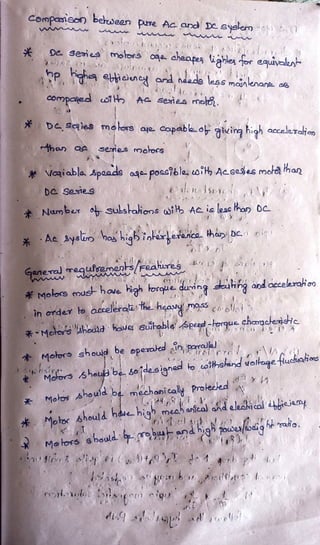 Comparison between pure AC and DC system
* DC series motors are cheaper, lighter for equivalent
hp higher efficiency and needs less maintenance as
compared with AC series motor.
* DC series motors are capable of giving high acceleration
than ac series motors
* Variable speeds are possible with AC series motor than
DC series
* Number of substations with AC is less than DC
* AC system has high interference than DC.
General requirements/Features
* Motors must have high torque during starting and acceleration
in order to accelerate the heavy mass
* Motors should have suitable speed-torque characteristic
* Motors should be operated in parallel
* Motors should be so designed to withstand voltage fluctuations
* Motor should be mechanically protected
* Motor should have high mechanical and electrical efficiency
* Motors should be robust and high power/weight ratio.